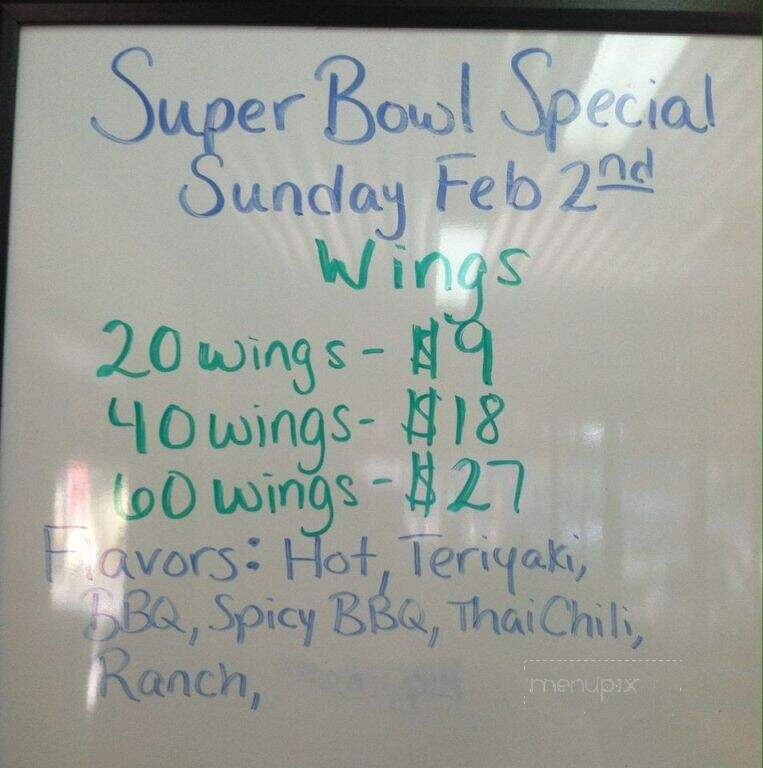 Super Bowl Special
Sunday Feb 2nd
Wings
20 wings - $9
40 wings - $18
60 wings - $27
Flavors: Hot, Teriyaki,
BBQ, Spicy BBQ, Thai Chili,
Ranch,
menupix